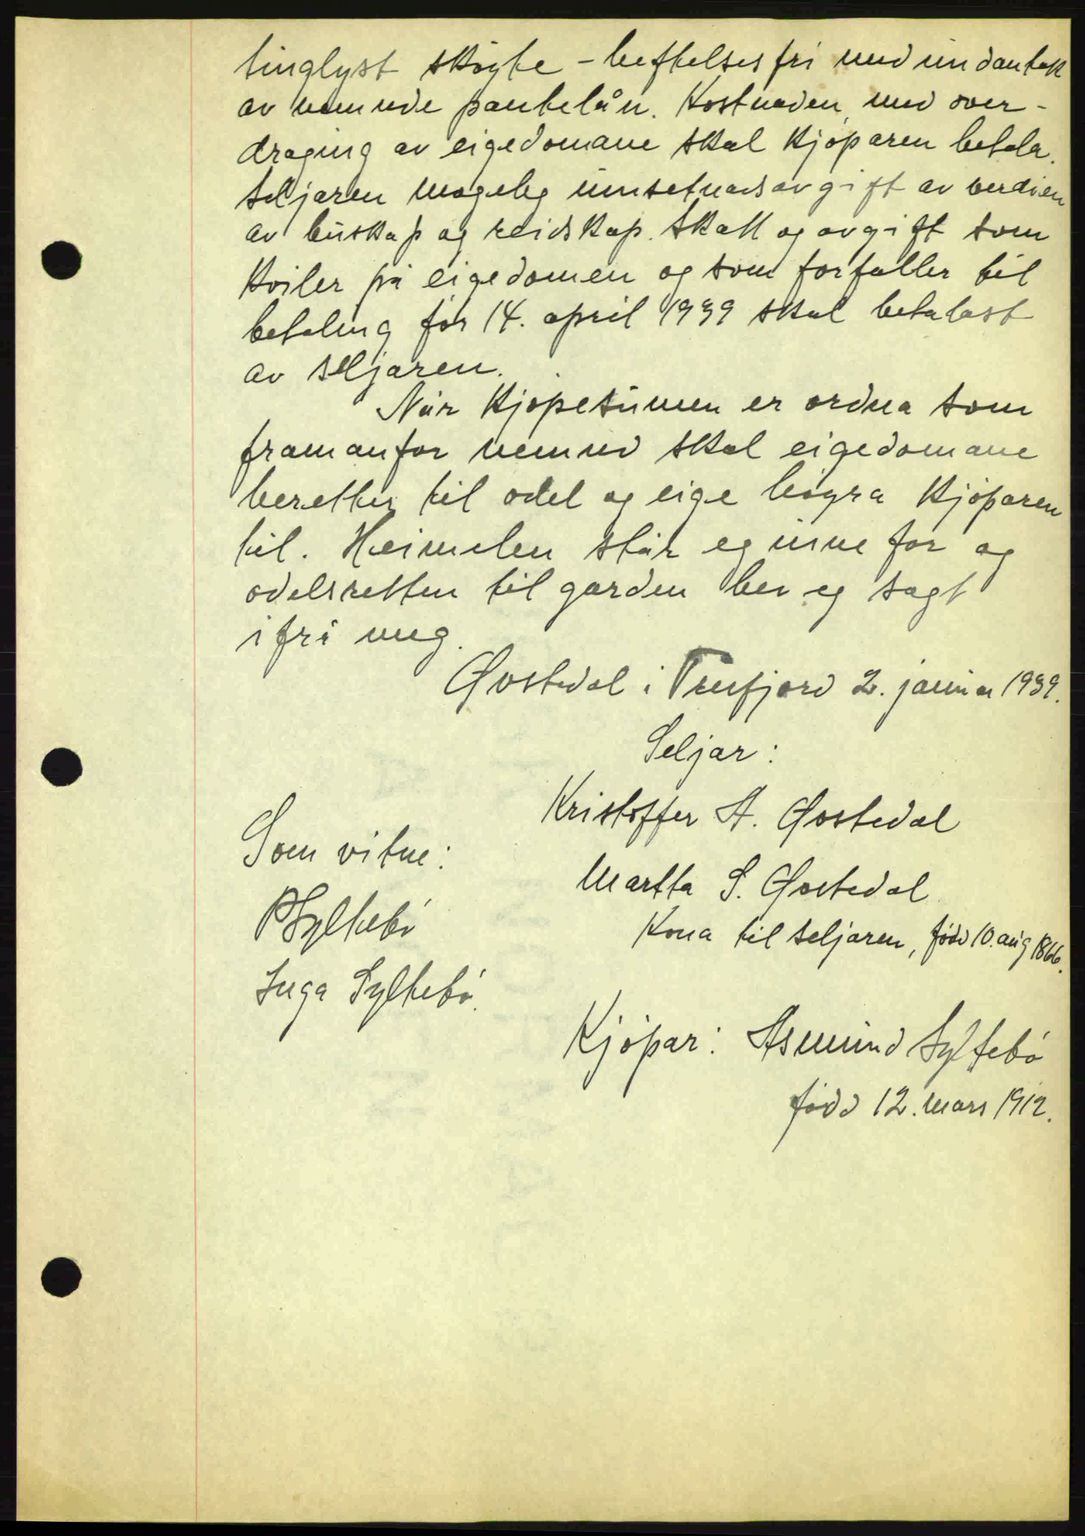 tinglyst skøyte - heftelsesfri med undantak
av nemnde pantelån. Kostnaden med over-
draging av eigedomane skal kjøparen betala.
Seljaren mogeleg umsetnadsavgift av verdien
av buskap og reidskap. Skatt og avgift som
kviler på eigedomen og som forfaller til
betaling før 14. april 1939 skal betalast
av seljaren.
Når kjøpesumen er ordna som
framanfor nemnd skal eigedomane
heretter til odel og eige høyra kjøparen
til. Heimelen står eg inne for og
odelsretten til garden ber eg sagt
ifrå meg.
Øvstedal i Tresfjord 2. januar 1939.
Seljar:
Kristoffer A. Øvstedal
Som vitne:
Martha S. Øvstedal
PSyltebø
Kona til seljaren, født 10. aug 1866.
Inga Syltebø.
Kjøpar: Asmund Syltebø
født 12. mars 1912.